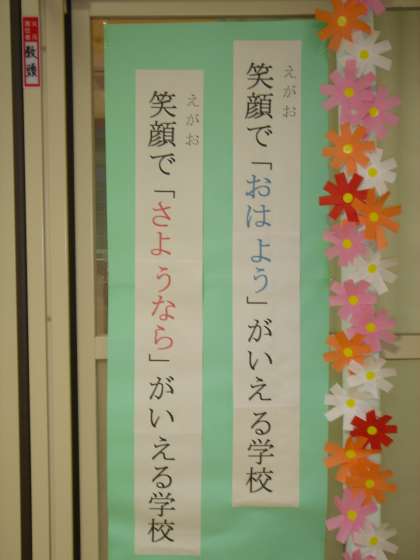 笑顔で「おはよう」がいえる学校
えがお
笑顔で「さようなら」がいえる学校
えがお
教頭